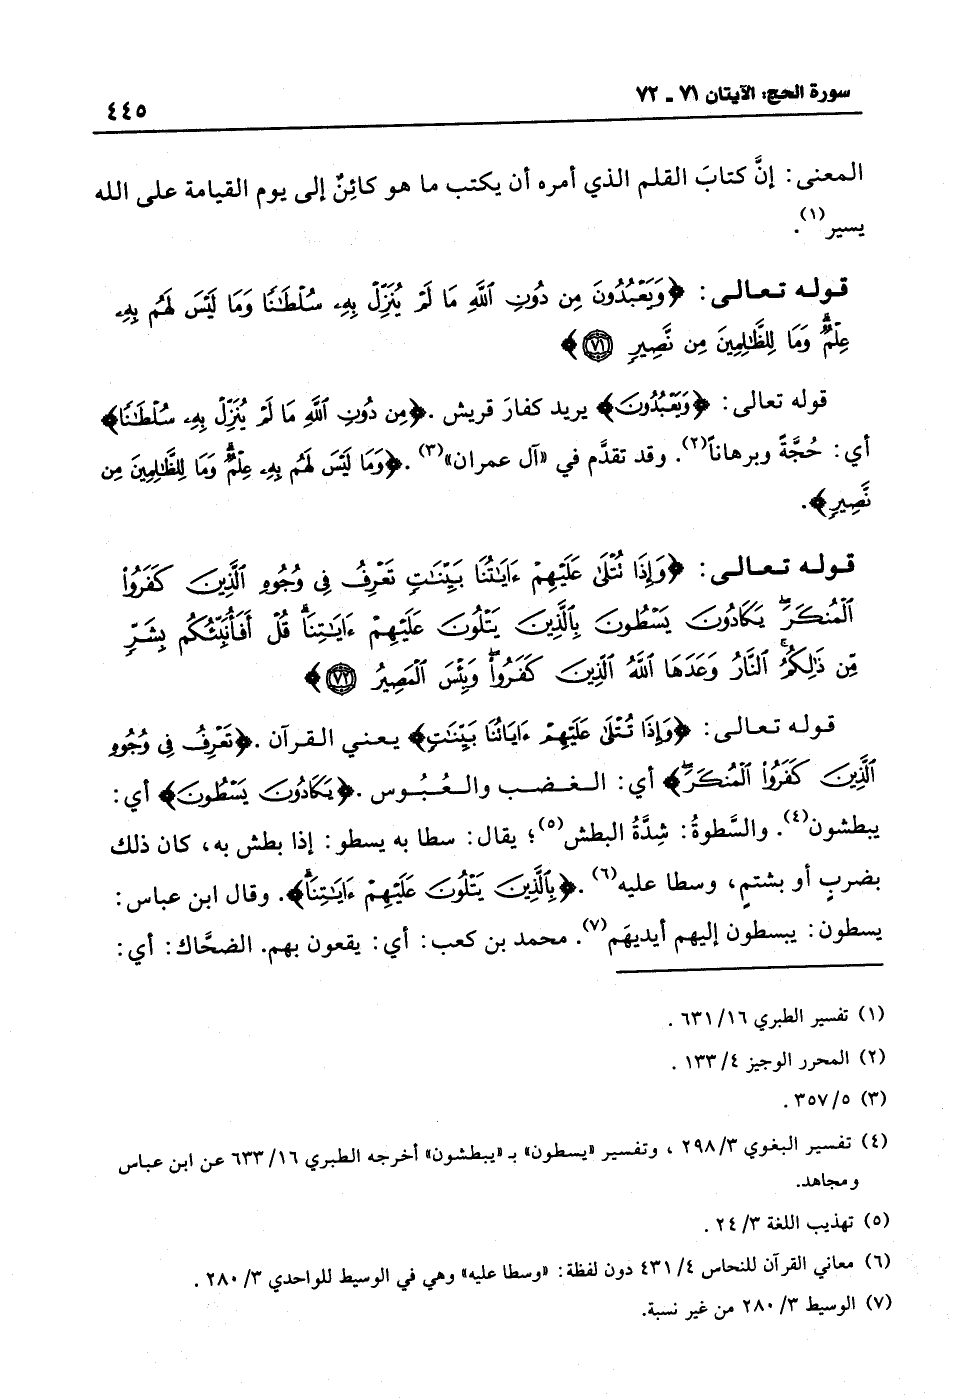 سورة الحج: الآيتان ٧١ ـ ٧٢
٤٤٥
المعنى: إنَّ كتابَ القلم الذي أمره أن يكتب ما هو كائِنٌ إلى يوم القيامة على الله
يسير(١).
قوله تعالى: ﴿وَيَعْبُدُونَ مِن دُونِ ٱللَّهِ مَا لَمْ يُنَزِّلْ بِهِۦ سُلْطَٰنًا وَمَا لَيْسَ لَهُم بِهِۦ
عِلْمٌۗ وَمَا لِلظَّٰلِمِينَ مِن نَّصِيرٍ ٧١﴾
قوله تعالى: ﴿وَيَعْبُدُونَ﴾ يريد كفارَ قريش. ﴿مِن دُونِ ٱللَّهِ مَا لَمْ يُنَزِّلْ بِهِۦ سُلْطَٰنًا﴾
أي: حُجَّةً وبرهاناً(٢). وقد تقدَّم في «آل عمران»(٣). ﴿وَمَا لَيْسَ لَهُم بِهِۦ عِلْمٌۗ وَمَا لِلظَّٰلِمِينَ مِن
نَّصِيرٍ﴾.
قوله تعالى: ﴿وَإِذَا تُتْلَىٰ عَلَيْهِمْ ءَايَٰتُنَا بَيِّنَٰتٍ تَعْرِفُ فِى وُجُوهِ ٱلَّذِينَ كَفَرُوا۟
ٱلْمُنكَرَۖ يَكَادُونَ يَسْطُونَ بِٱلَّذِينَ يَتْلُونَ عَلَيْهِمْ ءَايَٰتِنَاۗ قُلْ أَفَأُنَبِّئُكُم بِشَرٍّ
مِّن ذَٰلِكُمُۚ ٱلنَّارُ وَعَدَهَا ٱللَّهُ ٱلَّذِينَ كَفَرُوا۟ۖ وَبِئْسَ ٱلْمَصِيرُ ٧٢﴾
قوله تعالى: ﴿وَإِذَا تُتْلَىٰ عَلَيْهِمْ ءَايَاتُنَا بَيِّنَٰتٍ﴾ يعني القرآن. ﴿تَعْرِفُ فِى وُجُوهِ
ٱلَّذِينَ كَفَرُوا۟ ٱلْمُنكَرَۖ﴾ أي: الغضب والعُبُوس. ﴿يَكَادُونَ يَسْطُونَ﴾ أي:
يبطشون(٤). والسَّطوةُ: شِدَّةُ البطش(٥)؛ يقال: سطا به يسطو: إذا بطش به، كان ذلك
بضربٍ أو بشتمٍ، وسطا عليه(٦). ﴿بِٱلَّذِينَ يَتْلُونَ عَلَيْهِمْ ءَايَٰتِنَاۗ﴾. وقال ابن عباس:
يسطون: يبسطون إليهم أيديهَم(٧). محمد بن كعب: أي: يقعون بهم. الضحَّاك: أي:
(١) تفسير الطبري ١٦/ ٦٣١ .
(٢) المحرر الوجيز ٤/ ١٣٣ .
(٣) ٥/ ٣٥٧ .
(٤) تفسير البغوي ٣/ ٢٩٨ ، وتفسير «يسطون» بـ «يبطشون» أخرجه الطبري ١٦/ ٦٣٣ عن ابن عباس
ومجاهد.
(٥) تهذيب اللغة ٣/ ٢٤ .
(٦) معاني القرآن للنحاس ٤/ ٤٣١ دون لفظة: «وسطا عليه» وهي في الوسيط للواحدي ٣/ ٢٨٠ .
(٧) الوسيط ٣/ ٢٨٠ من غير نسبة.